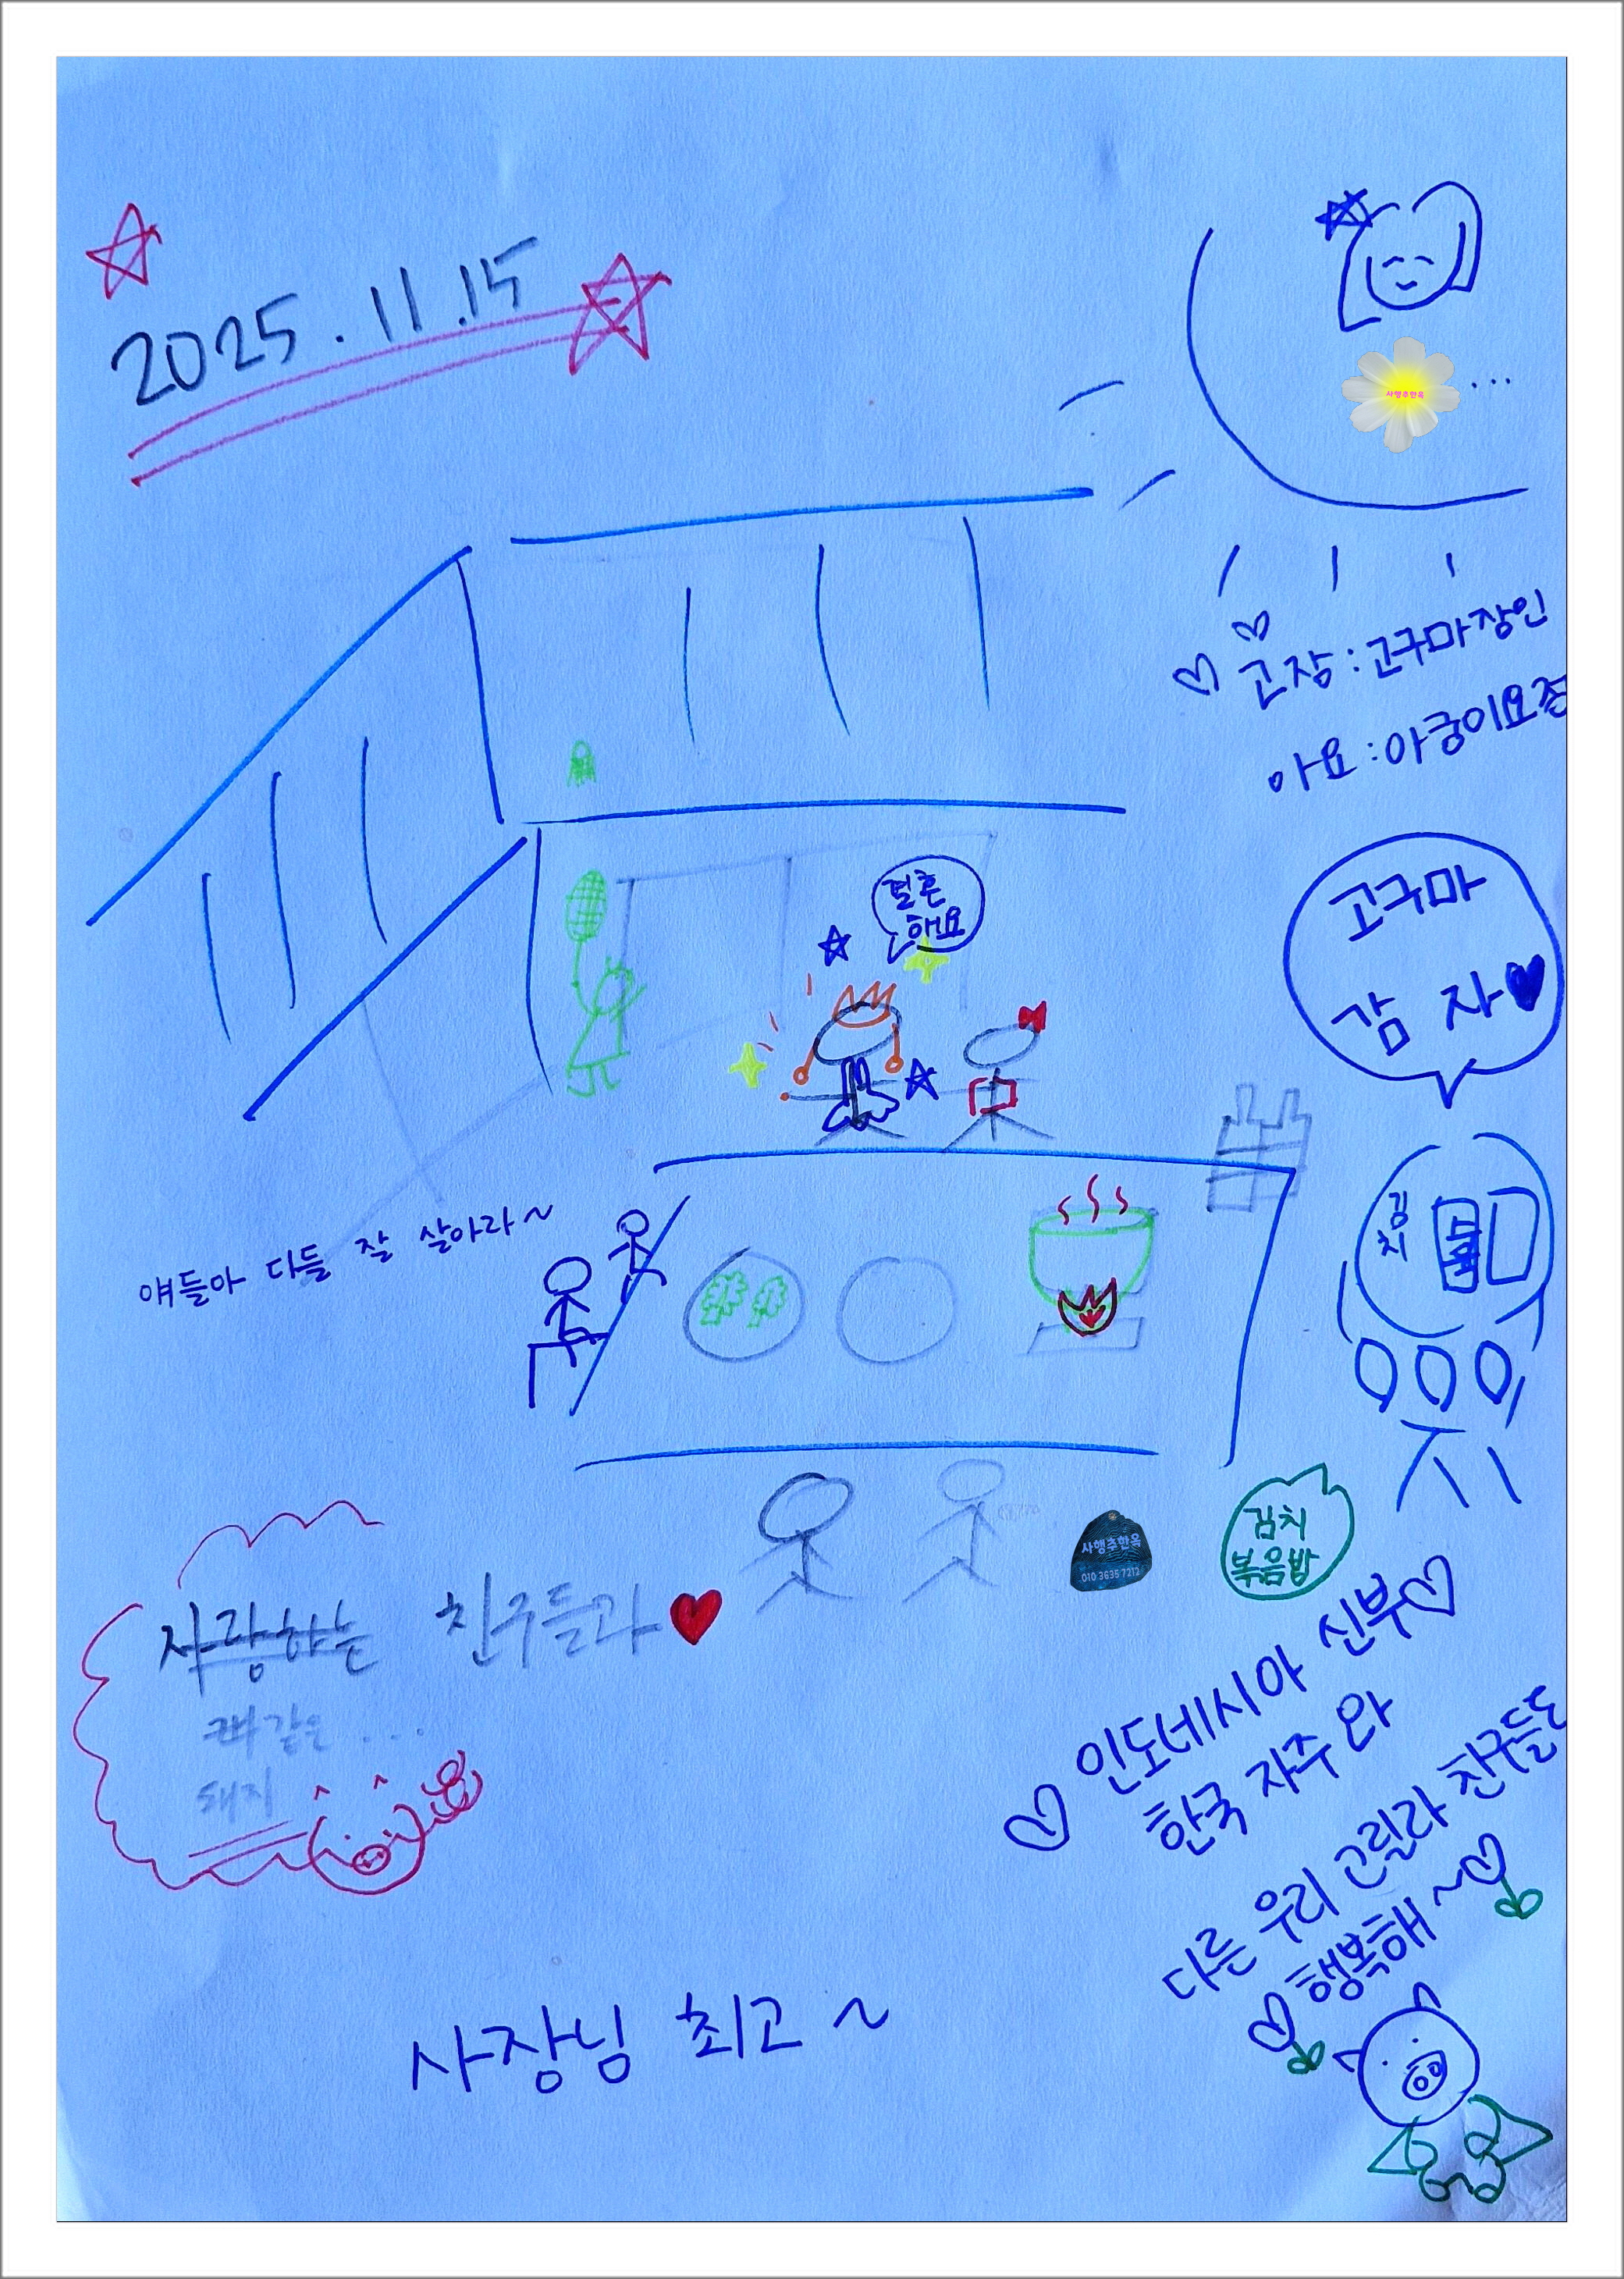 2025.11.15
사행추한옥
...
고장 : 고구마장인
아요 : 아궁이요정
고구마
감 자
결혼
해요
김치
얘들아 다들 잘 살아라~
사행추한옥
010 3635 7212
김치
볶음밥
사랑하는 친구들과
같은 ...
돼지
인도네시아 신부
한국 자주 와
다른 우리 고릴라 친구들도
행복해~
사장님 최고~